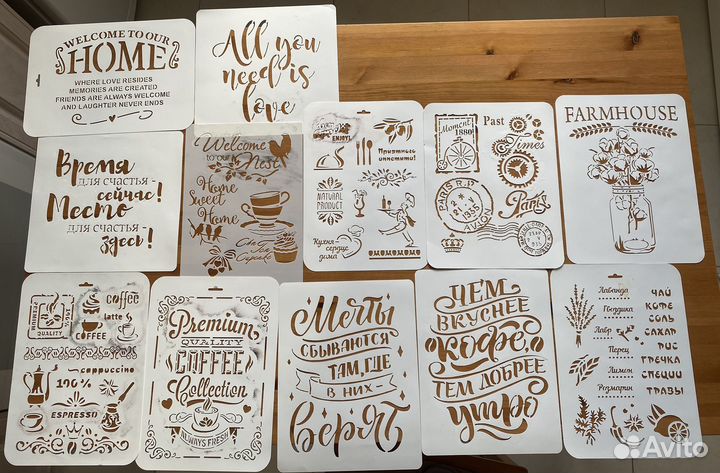 WELCOME TO OUR
HOME
WHERE LOVE RESIDES
MEMORIES ARE CREATED
FRIENDS ARE ALWAYS WELCOME
AND LAUGHTER NEVER ENDS
All you
need is
love
Время
для счастья -
сейчас!
Место
для счастья -
здесь!
Welcome
to our Nest
Home
Sweet
Home
Cupcake
ENJOY!
Приятного
аппетита!
NATURAL
PRODUCT
Кухня-
сердце
дома
Moment
1880
Past
Times
PARIS R.P.
AVION
Paris
FARMHOUSE
PREMIUM
QUALITY
coffee
latte
COFFEE
cappuccino
100%
ESPRESSO
Premium
QUALITY
COFFEE
Collection
ALWAYS FRESH
Мечты
СБЫВАЮТСЯ
ТАМ, ГДЕ
В НИХ -
Верят
ЧЕМ
ВКУСНЕЕ
кофе,
ТЕМ ДОБРЕЕ
утро
Лаванда
Гвоздика
Лавр
Перец
Лимон
Розмарин
ЧАЙ
КОФЕ
СОЛЬ
САХАР
РИС
ГРЕЧКА
СПЕЦИИ
ТРАВЫ
Avito